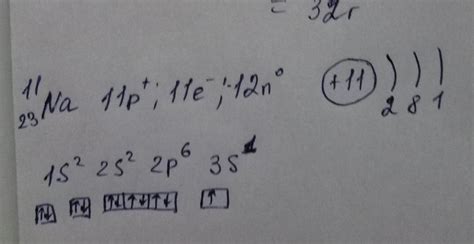 = 32г
¹¹₂₃Na 11p⁺; 11e⁻; 12n⁰ +11 ) ) )
2 8 1
1S² 2S² 2p⁶ 3S¹
↑↓ ↑↓ ↑↓ ↑↓ ↑↓ ↑